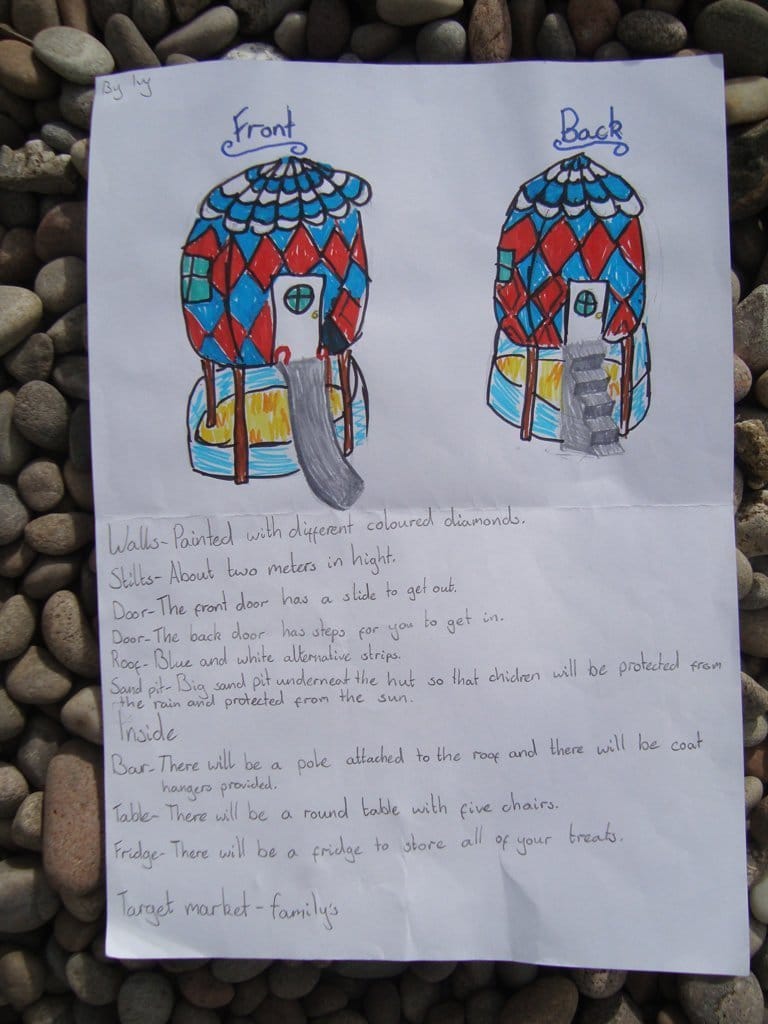 By Ivy
Front
Back
Walls-Painted with different coloured diamonds.
Stilts-About two meters in hight.
Door-The front door has a slide to get out.
Door-The back door has steps for you to get in.
Roof-Blue and white alternative strips.
Sand pit-Big sand pit underneat the hut so that chidren will be protected from
the rain and protected from the sun.
Inside
Bar-There will be a pole attached to the roof and there will be coat
hangers provided.
Table-There will be a round table with five chairs.
Fridge-There will be a fridge to store all of your treats.
Target market-family's